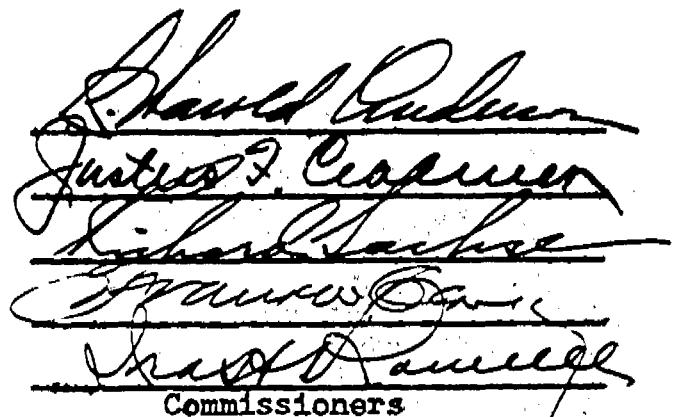 C. Harold Anderson
Justus F. Craemer
Richard Sachse
Franck Havenner
Ira H. Rowell
Commissioners